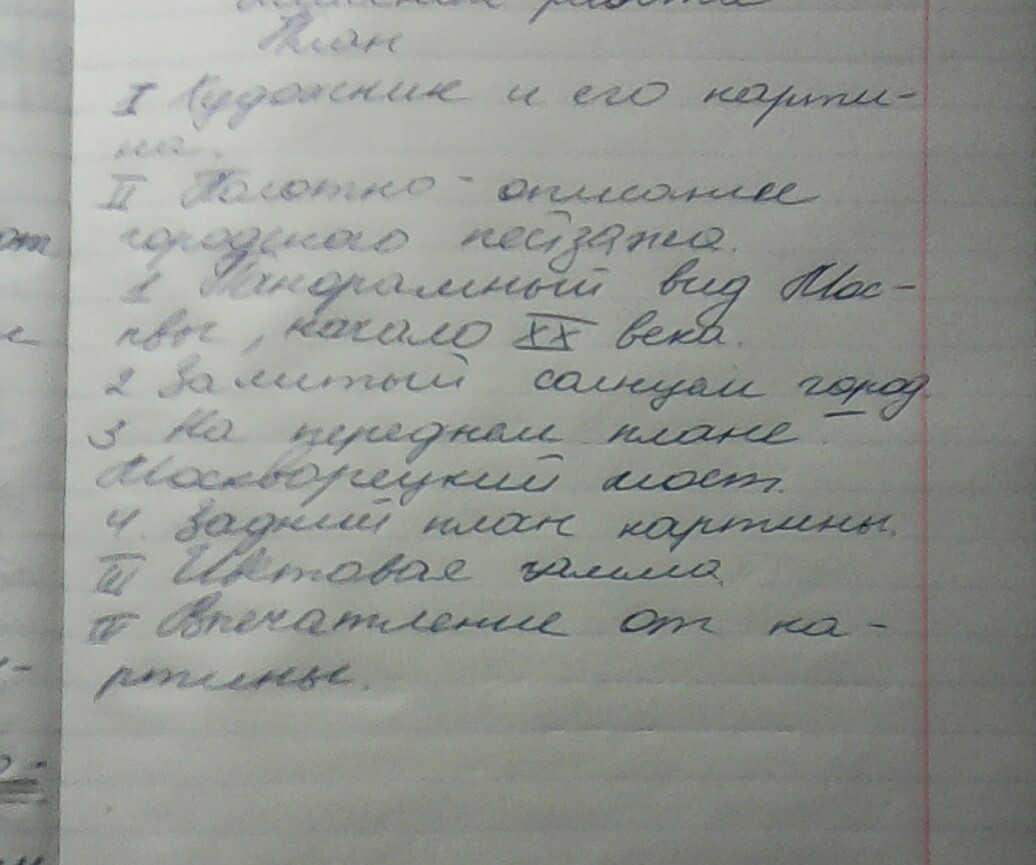 План
I Художник и его карти-
на.
II Полотно - описание
от
городского пейзажа.
1 Панорамный вид Мос-
квы, начало XX века.
2 Залитый солнцем город.
3 На переднем плане
Москворецкий мост.
4. Задний план картины.
III Цветовая гамма.
IV Впечатление от ка-
ртины.